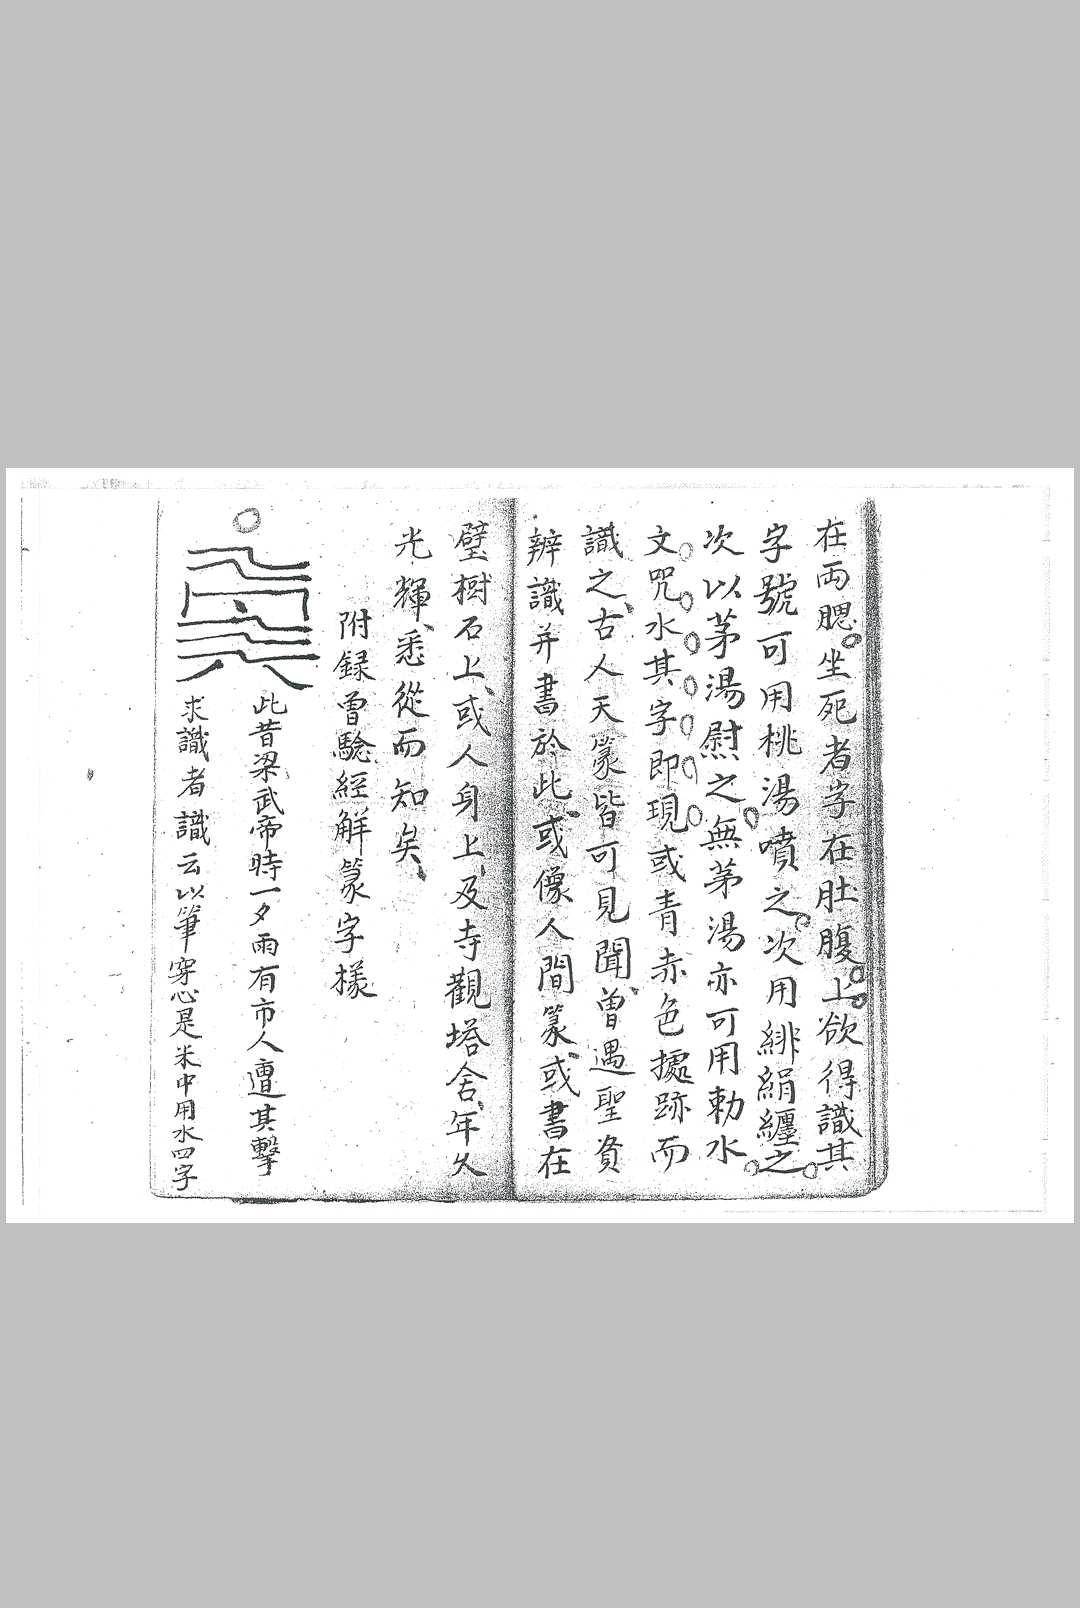 在両腮坐死者字在肚腹上欲得識其
字號可用桃湯噴之次用緋絹纏之
次以茅湯慰之無茅湯亦可用勅水
文咒水其字即現或青赤色據跡而
識之古人天篆皆可見聞曽遇聖賁
辨識并書於此或像人間篆或書在
壁樹石上或人身上及寺觀塔舍年久
光輝悉從而知矣
附録曽驗經解篆字様
此昔梁武帝時一夕雨有市人遭其擊
求識者識云以筆穿心是米中用水四字